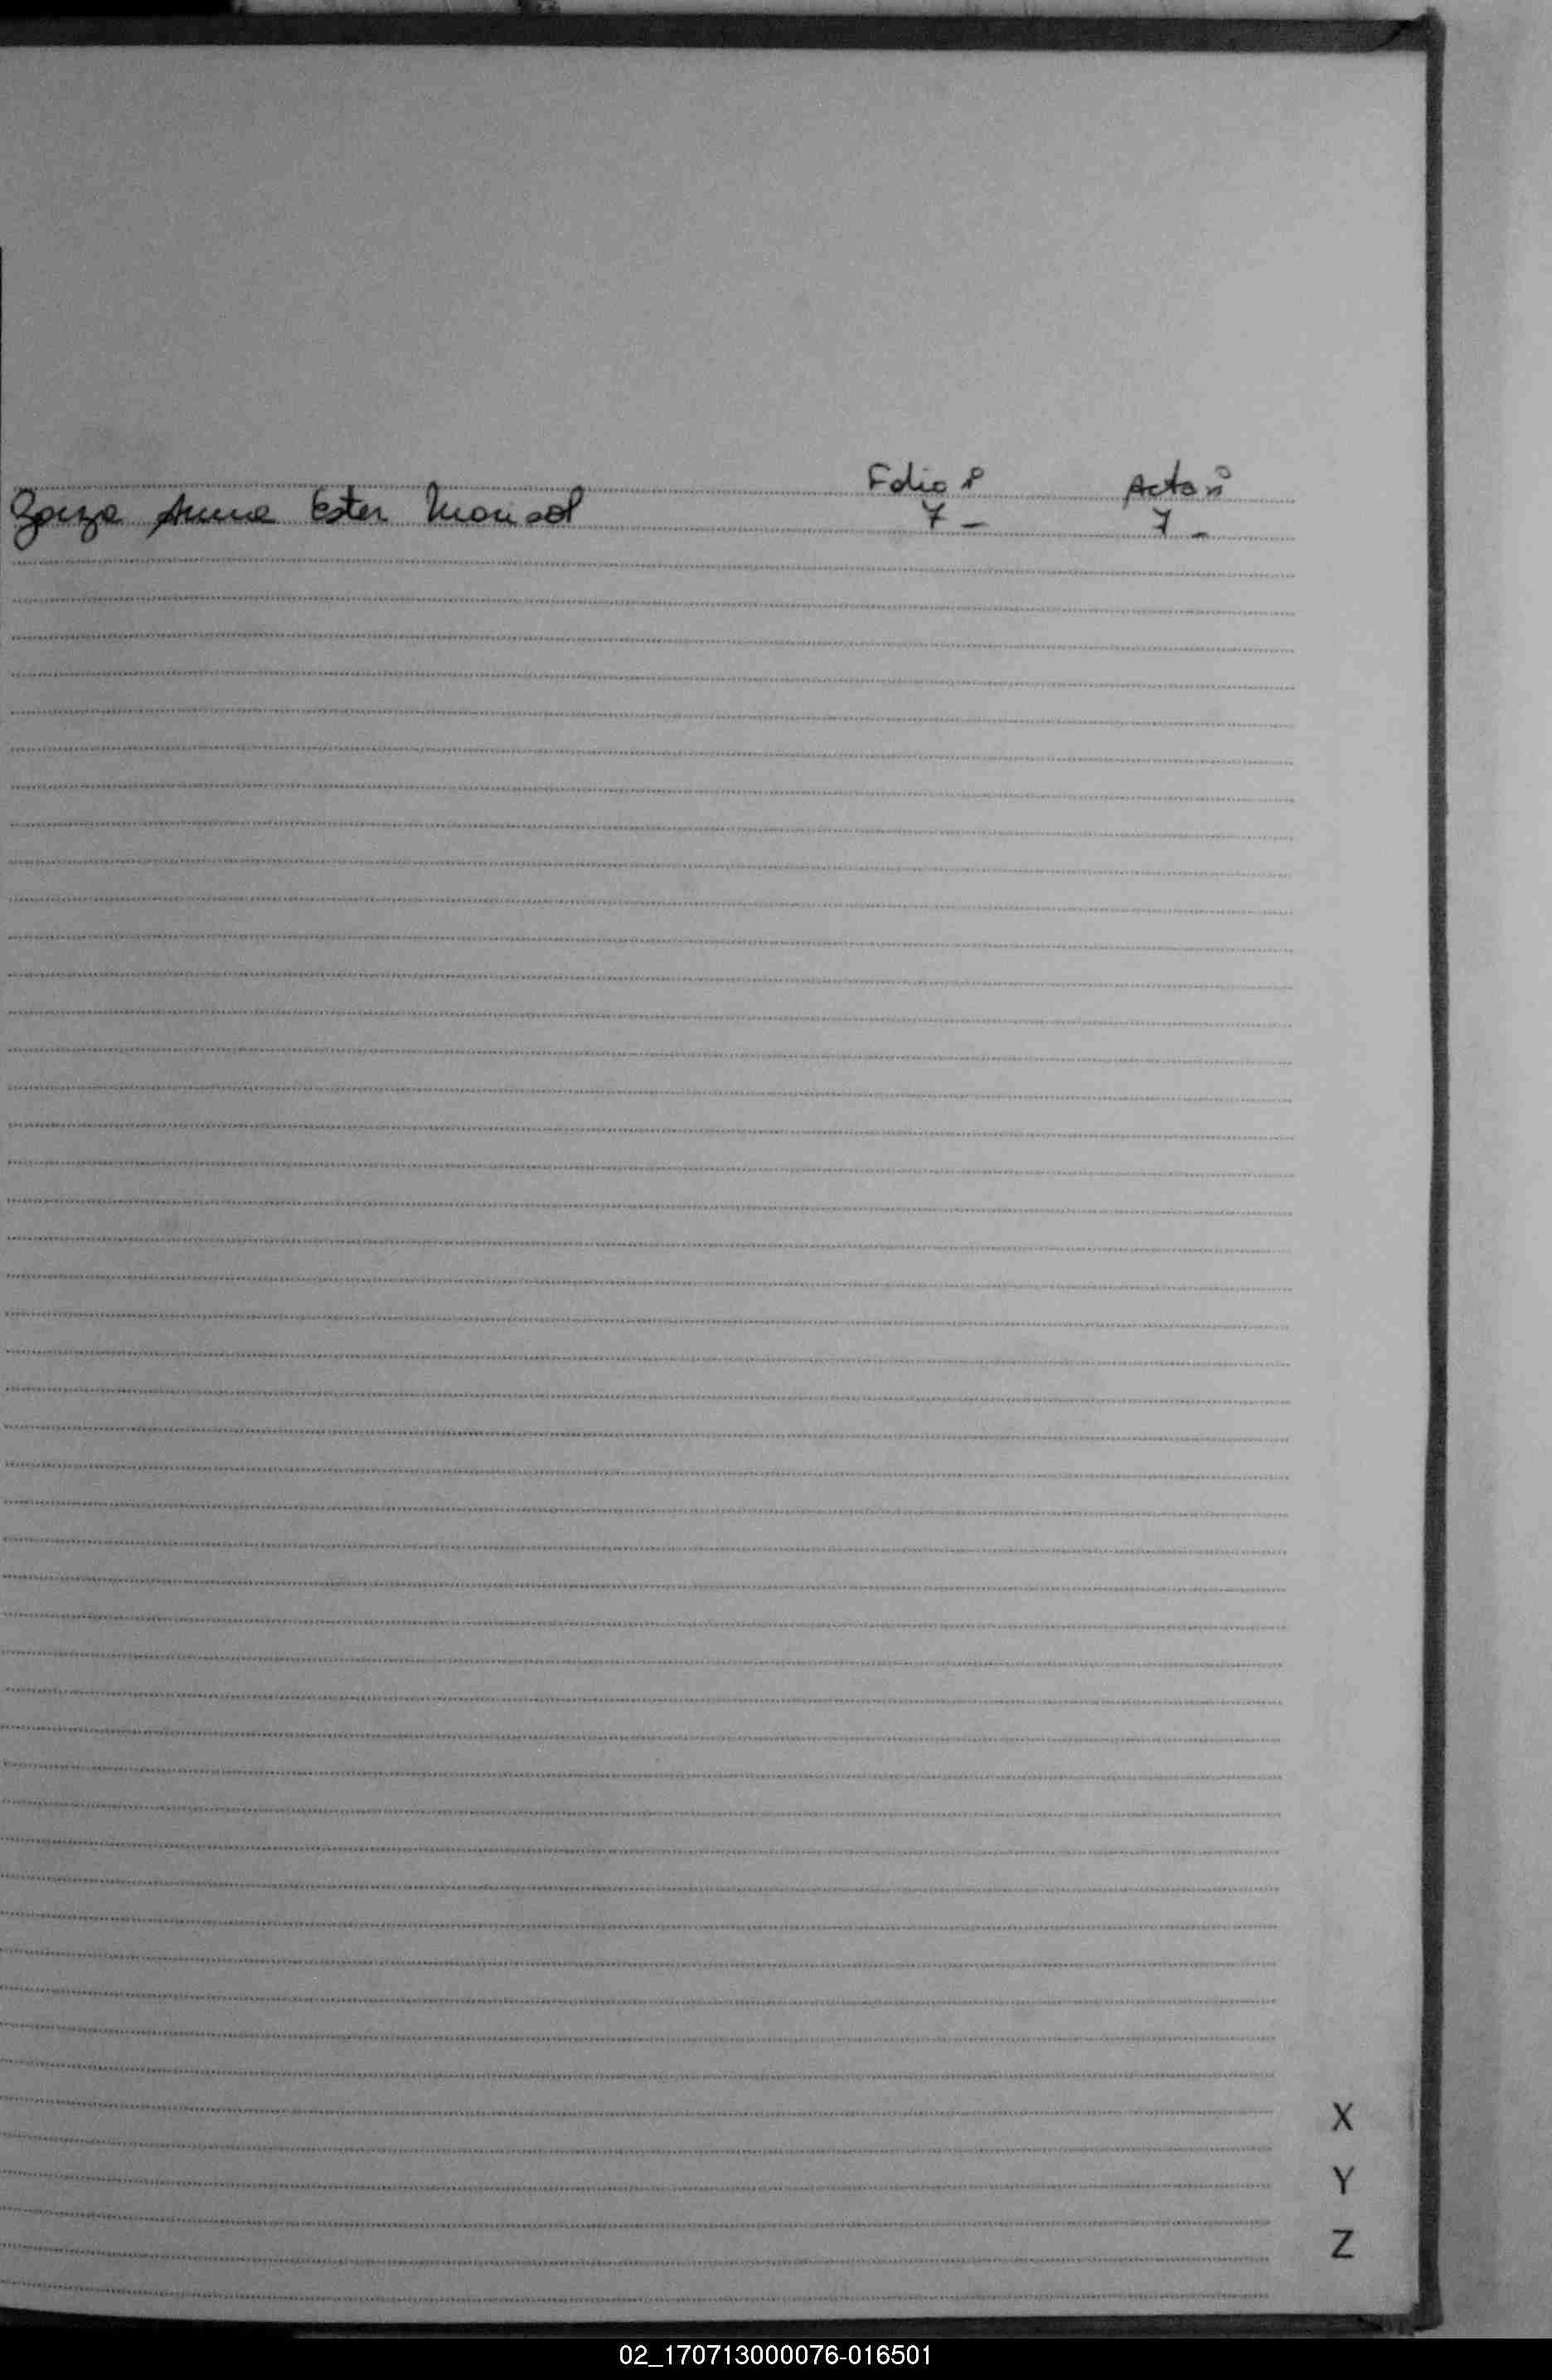 Folio nº Acta nº
Zarza Ester Marisol 7 _ 7 _
X
Y
Z
02_170713000076-016501